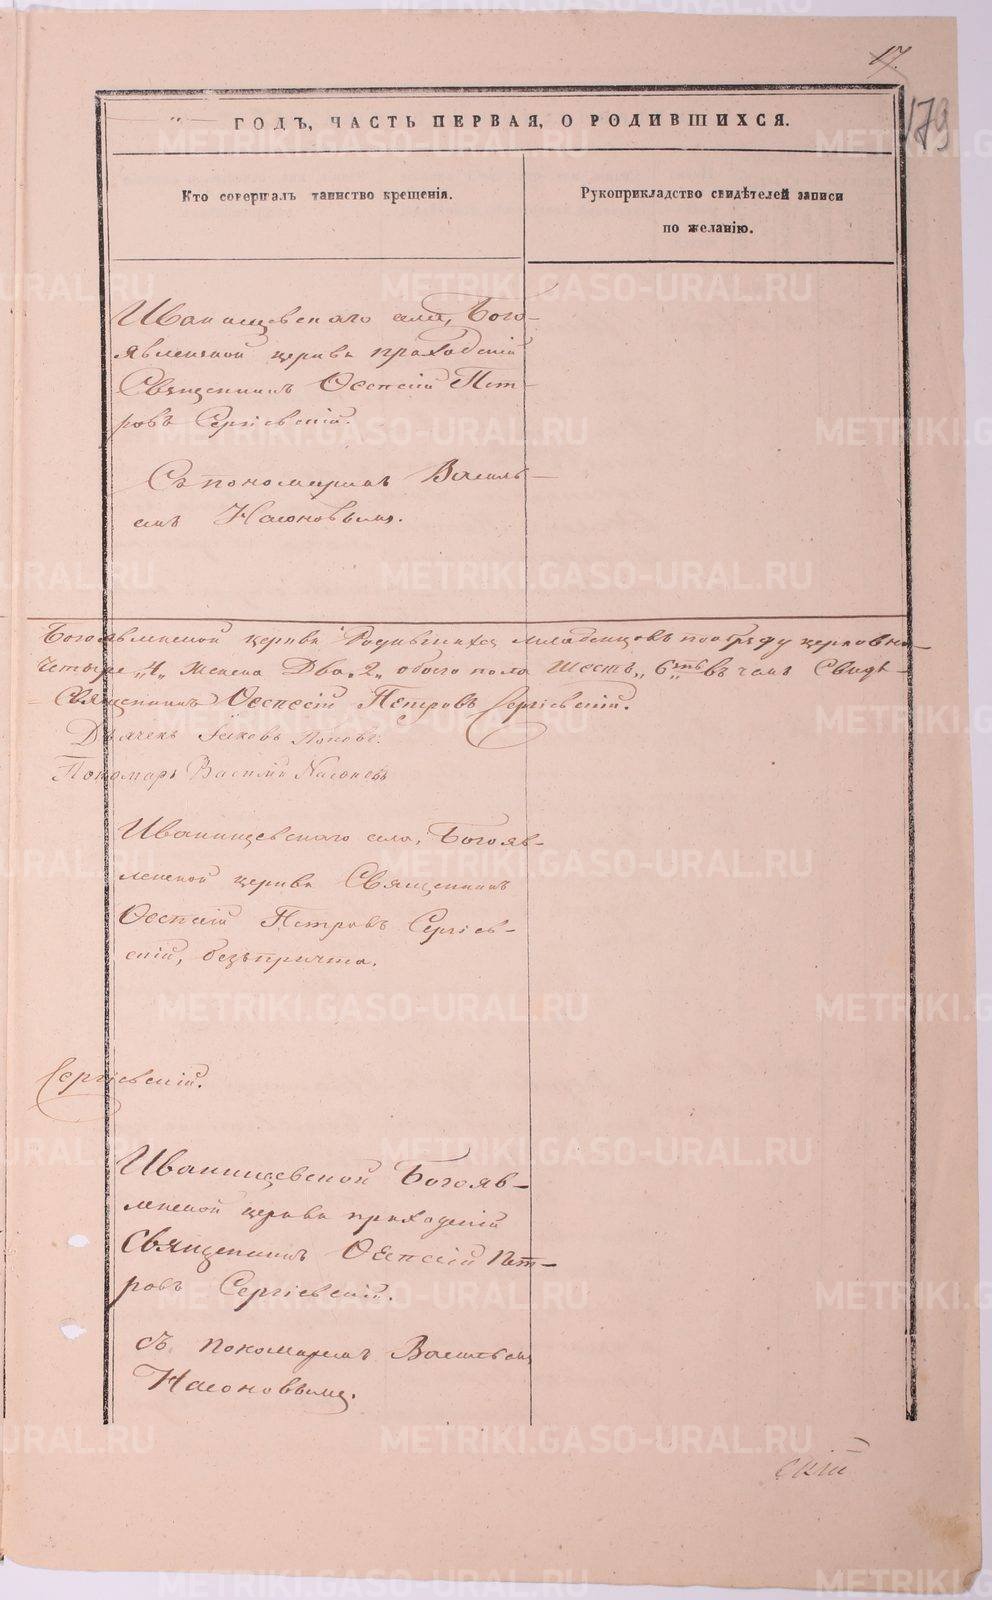 17.
179
" ГОДЪ, ЧАСТЬ ПЕРВАЯ, О РОДИВШИХСЯ.
Кто совершалъ таинство крещенія.
Рукоприкладство свидѣтелей записи
по желанію.
Иванищевскаго села, Бого-
явленской церкви приходскій
Священникъ Ѳеопсій Пет-
ровъ Сергіевскій.
Съ пономаремъ Василь-
емъ Насоновымъ.
Богоявленской церкви Родившихся младенцовъ по обряду церковно
Четыре „4„ Женска Два „2„ обоего пола Шесть „6ть„ въ чемъ Свидѣ-
Священникъ Петровъ Сергіевскій.
Дьячекъ Іаковъ Поповъ.
Пономарь Василій Насоновъ
Иванищевскаго села, Богояв-
ленской церкви Священникъ
Петровъ Сергіев-
скій, безъ причта.
Сергіевскій.
Иванищевской Богояв-
ленской церкви приходскій
Священникъ Пет-
ровъ Сергіевскій.
съ пономаремъ Васильемъ
Насоновымъ.
скій
METRIKI.GASO-URAL.RU